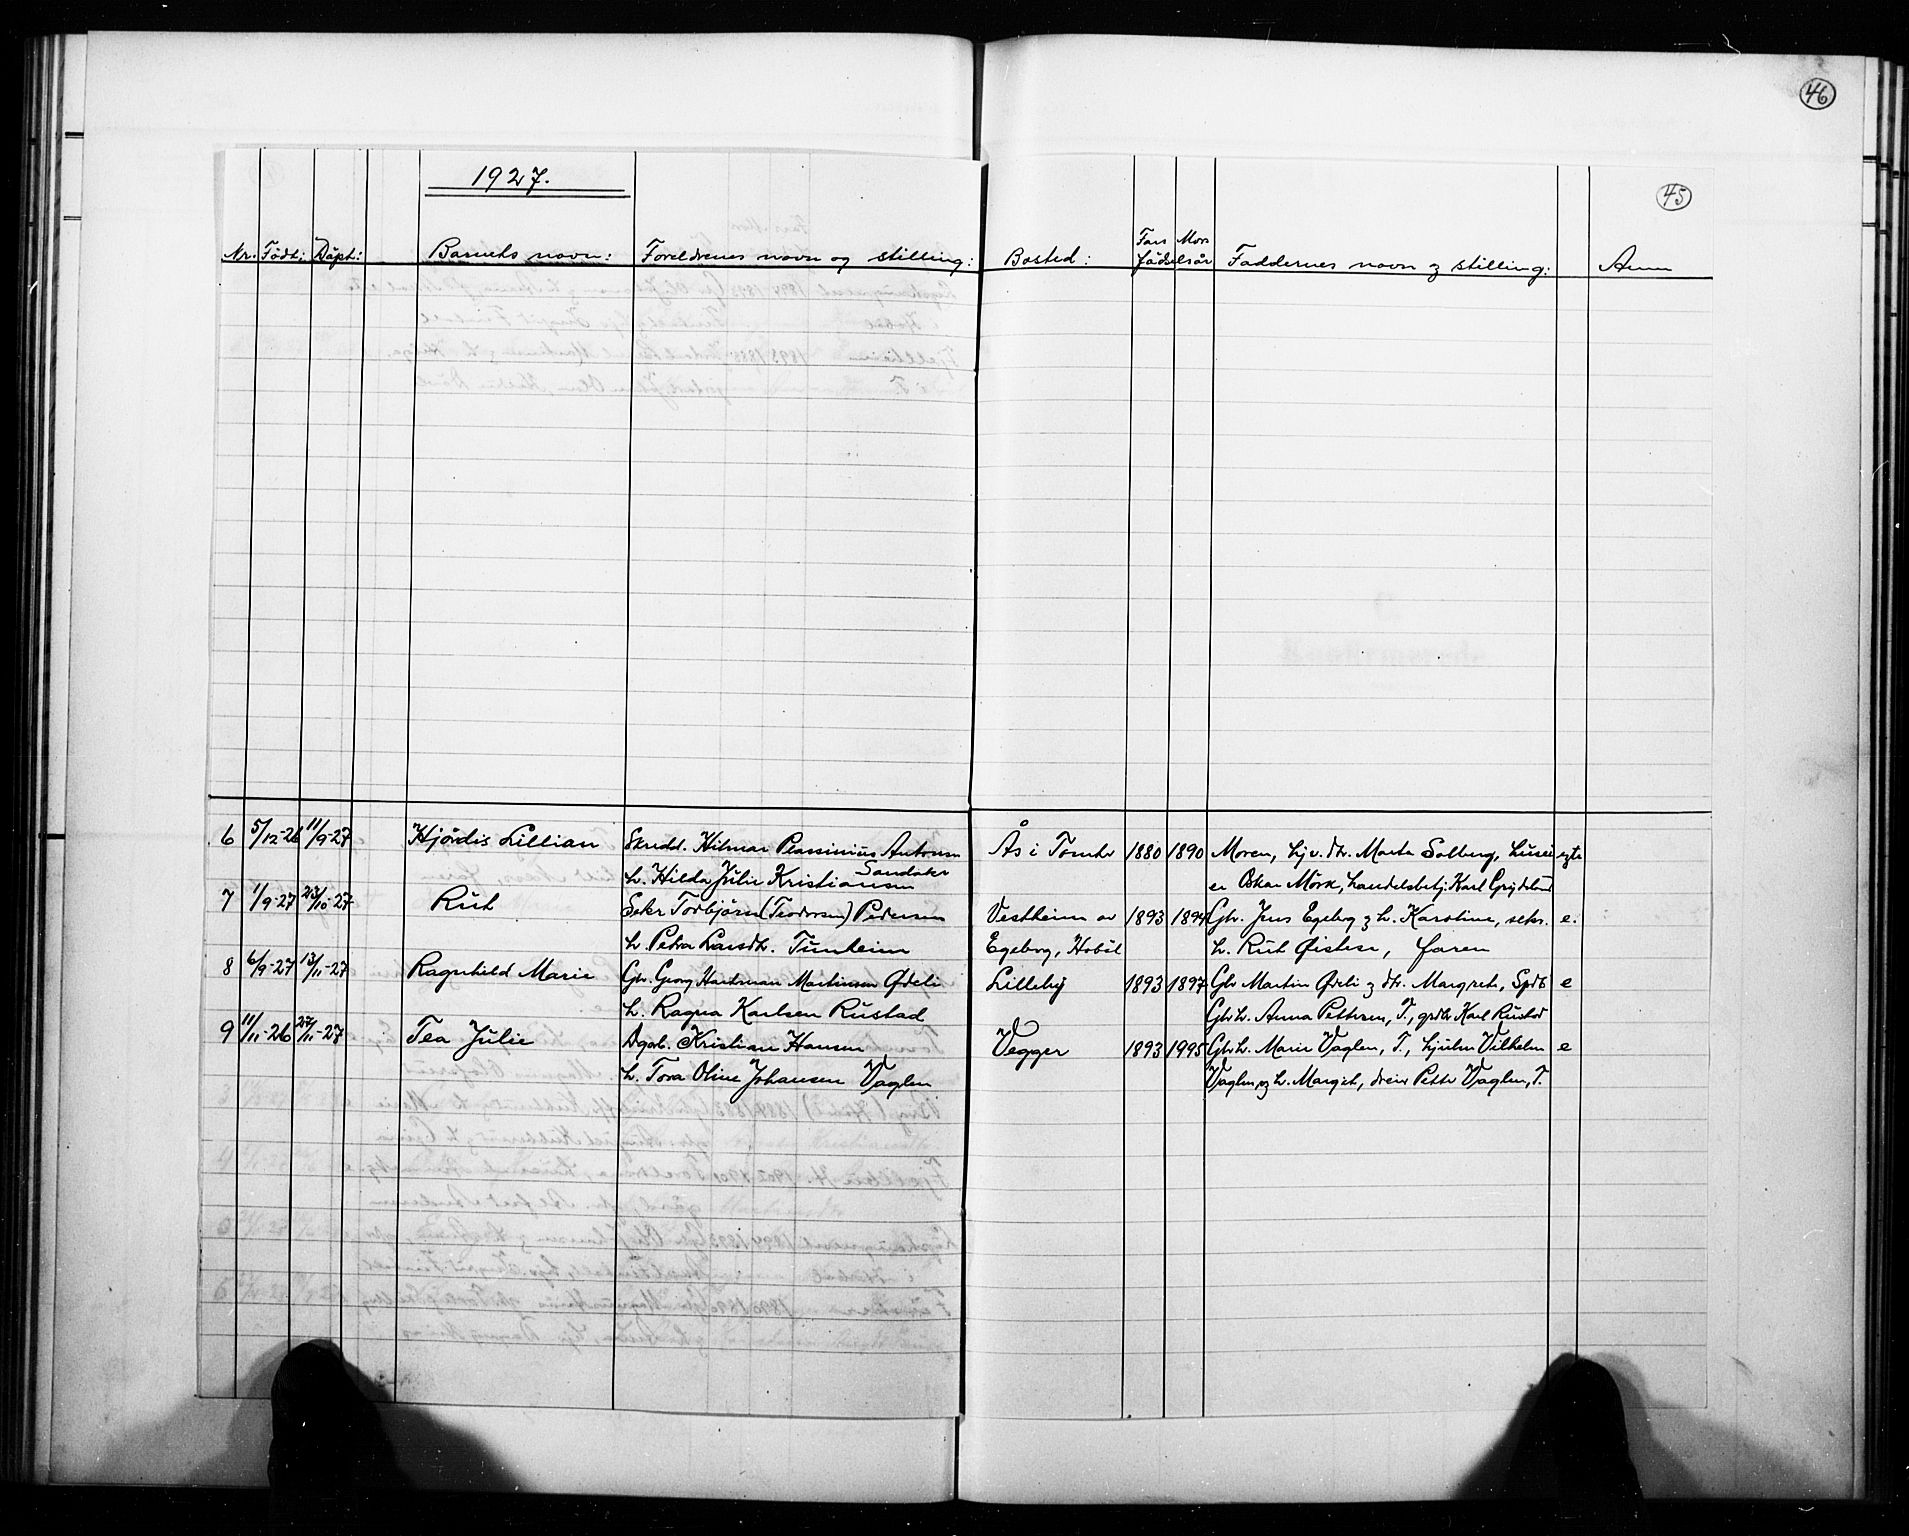 46
45
1927.
Nr. Født: Døpt: Barnets navn: Foreldrenes navn og stilling: Bosted: Fars Mors fødselsår Faddernes navn og stilling: Anm
6 5/12-26 11/9-27 Hjördis Lillian Skredd. Hilmar Antonsen Ås i Tomter 1880 1890 Moren, hjv. dtr. Marta Solberg, husei egte
h. Hilda Julie Kristiansen Sandaker er Oskar Mörk, handelsbetj. Karl
7 1/9-27 23/10-27 Rut Sekr Torbjörn (Teodorsen) Pedersen Vestheim av 1893 1894 Gbr. Jens Egeberg og h. Karoline, sekr. e.
h. Petra Larsdtr. Tunheim Egeberg, Hobøl h. Rut Øistese, faren
8 6/9-27 13/11-27 Ragnhild Marie Gbr. Georg Hartman Martinsen Ødeli Lilleby 1893 1897 Gbr Martin Ødeli og dtr. Margrete, Spdb e
h. Ragna Karlsen Rustad Gbr.h. Anna Pettersen, T., grdbr Karl Rustad
9 11/11-26 27/11-27 Tea Julie Dgarb. Kristian Hansen Vegger 1893 1995 Gbr.h. Marie Vaglen, T., hjulm Vilhelm e
h. Tora Oline Johansen Vaglen Vaglen, og h. Margit, dreier Petter Vaglen, T.